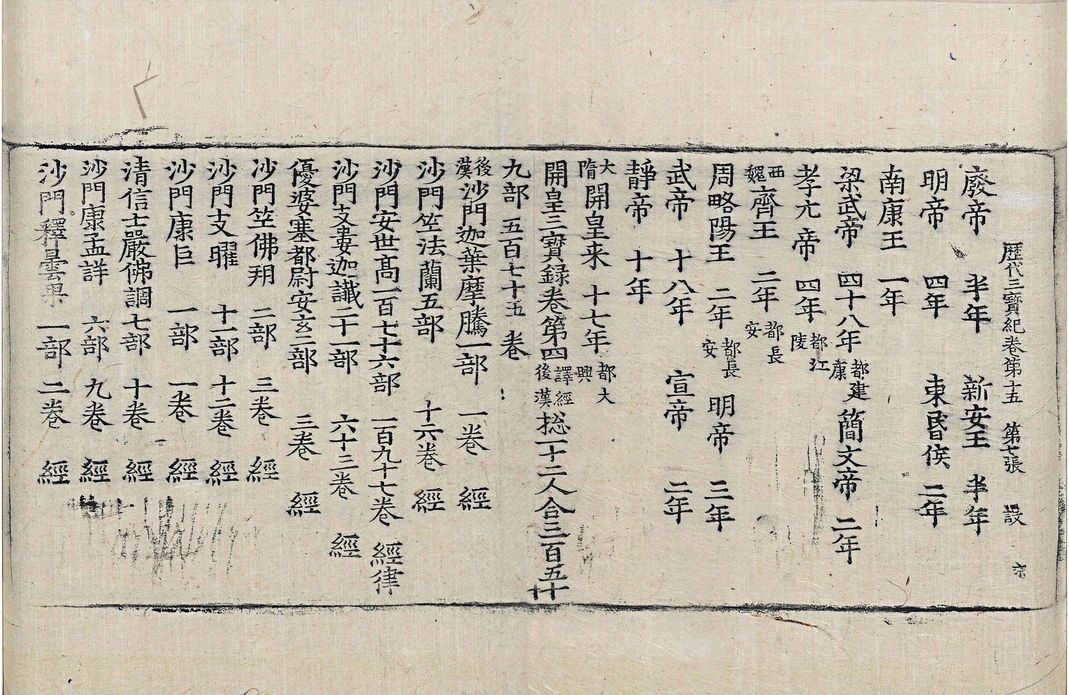 歷代三寶紀卷第十五 第七張 設
廢帝 半年 新安王 半年
明帝 四年 東昏侯 二年
南康王 一年
梁武帝 四十八年 都建康 簡文帝 二年
孝元帝 四年 都江陵
西魏 齊王 二年 都長安
周略陽王 二年 都長安 明帝 三年
武帝 十八年 宣帝 二年
靜帝 十年
大隋 開皇来 十七年 都大興
開皇三寶録卷第四 譯經後漢 捴一十二人合三百五十
九部 五百七十五卷
後漢 沙門迦葉摩騰一部 一卷 經
沙門竺法蘭五部 十六卷 經
沙門安世髙一百七十六部 一百九十七卷 經律
沙門支婁迦讖二十一部 六十三卷 經
優婆塞都尉安玄二部 三卷 經
沙門竺佛朔 二部 三卷 經
沙門支曜 十一部 十二卷 經
沙門康巨 一部 一卷 經
清信士嚴佛調七部 十卷 經
沙門康孟詳 六部 九卷 經
沙門釋曇果 一部 二卷 經